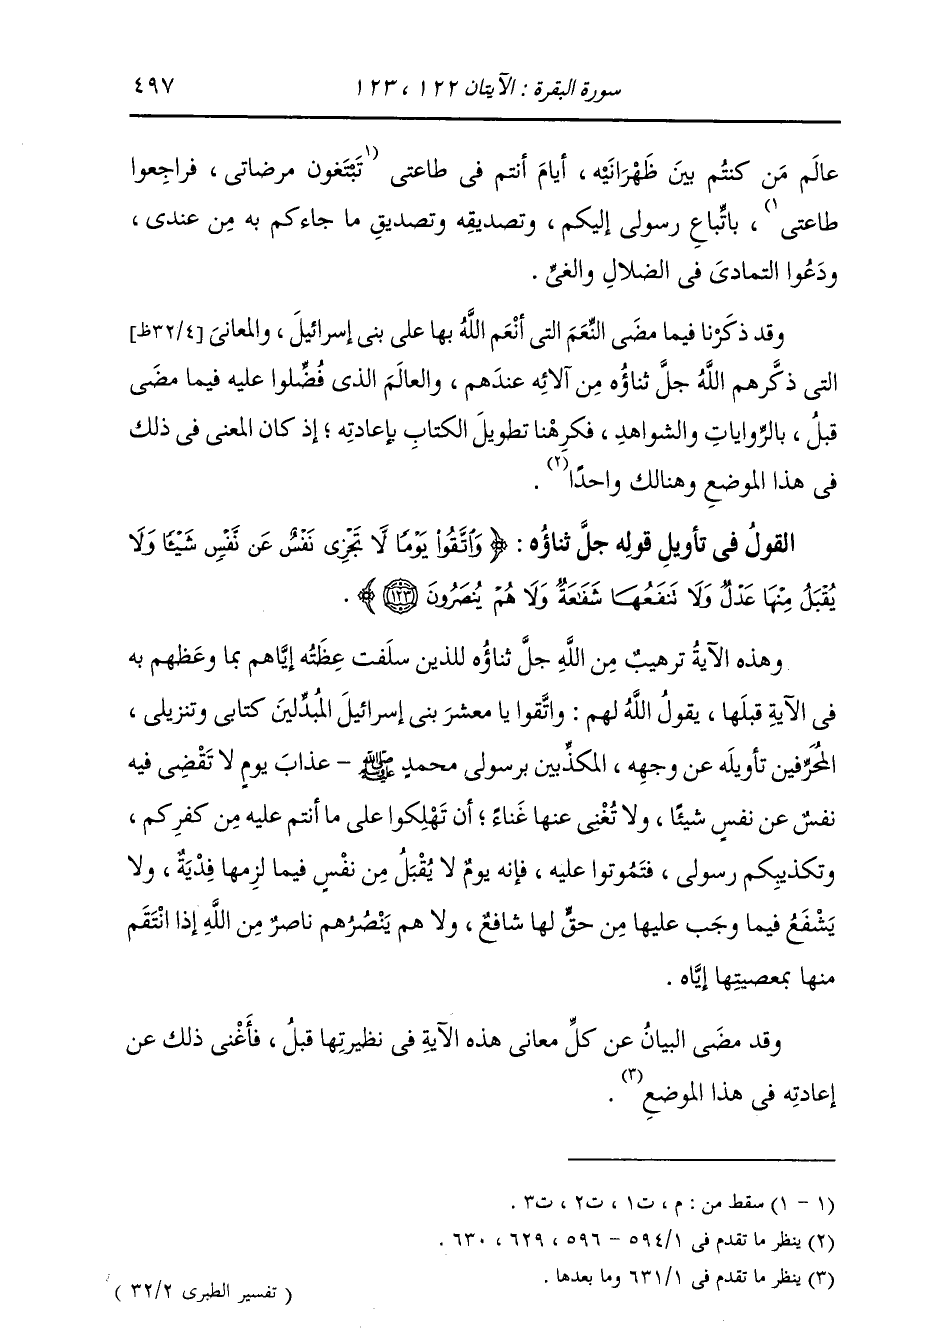 سورة البقرة : الآيتان ١٢٢ ، ١٢٣ ٤٩٧
عالَم مَن كنتُم بينَ ظَهْرَانَيْه ، أيامَ أنتم فى طاعتى (١تَبْتَغون مرضاتى ، فراجِعوا
طاعتى١) ، باتِّباعِ رسولى إليكم ، وتصديقِه وتصديقِ ما جاءكم به مِن عندى ،
ودَعُوا التمادىَ فى الضلالِ والغىِّ .
وقد ذكَرْنا فيما مضَى النِّعَمَ التى أنْعَم اللَّهُ بها على بنى إسرائيلَ ، والمعانىَ [٣٢/٤ظ]
التى ذكَّرهم اللَّهُ جلَّ ثناؤُه مِن آلائِه عندَهم ، والعالَمَ الذى فُضِّلوا عليه فيما مضَى
قبلُ ، بالرِّواياتِ والشواهدِ ، فكرِهْنا تطويلَ الكتابِ بإعادتِه ؛ إذ كان المعنى فى ذلك
فى هذا الموضعِ وهنالك واحدًا(٢) .
القولُ فى تأويلِ قولِه جلَّ ثناؤُه : ﴿ وَاتَّقُوا۟ يَوْمًا لَّا تَجْزِى نَفْسٌ عَن نَّفْسٍ شَيْـًٔا وَلَا
يُقْبَلُ مِنْهَا عَدْلٌ وَلَا تَنفَعُهَا شَفَـٰعَةٌ وَلَا هُمْ يُنصَرُونَ ١٢٣ ﴾ .
وهذه الآيةُ ترهيبٌ مِن اللَّهِ جلَّ ثناؤُه للذين سلَفت عِظَتُه إيَّاهم بما وعَظهم به
فى الآيةِ قبلَها ، يقولُ اللَّهُ لهم : واتَّقوا يا معشرَ بنى إسرائيلَ المُبدِّلينَ كتابى وتنزيلى ،
المُحَرِّفين تأويلَه عن وجهِه ، المكذِّبين برسولى محمدٍ ﷺ - عذابَ يومٍ لا تَقْضِى فيه
نفسٌ عن نفسٍ شيئًا ، ولا تُغْنِى عنها غَناءً ؛ أن تَهْلِكوا على ما أنتم عليه مِن كفرِكم ،
وتكذيبِكم رسولى ، فتَمُوتوا عليه ، فإنه يومٌ لا يُقْبَلُ مِن نفْسٍ فيما لزِمها فِدْيَةٌ ، ولا
يَشْفَعُ فيما وجَب عليها مِن حقٍّ لها شافعٌ ، ولا هم يَنْصُرُهم ناصرٌ مِن اللَّهِ إذا انْتَقَم
منها بمعصيتِها إيَّاه .
وقد مضَى البيانُ عن كلِّ معانى هذه الآيةِ فى نظيرتِها قبلُ ، فأَغْنى ذلك عن
إعادتِه فى هذا الموضعِ(٣) .
(١ - ١) سقط من : م ، ت١ ، ت٢ ، ت٣ .
(٢) ينظر ما تقدم فى ٥٩٤/١ - ٥٩٦ ، ٦٢٩ ، ٦٣٠ .
(٣) ينظر ما تقدم فى ٦٣١/١ وما بعدها .
( تفسير الطبرى ٣٢/٢ )